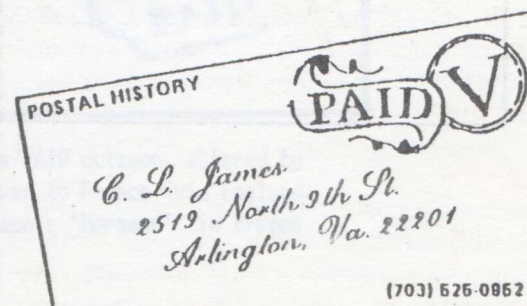 POSTAL HISTORY
PAID V
C. L. James
2519 North 9th St.
Arlington, Va. 22201
(703) 525-0952